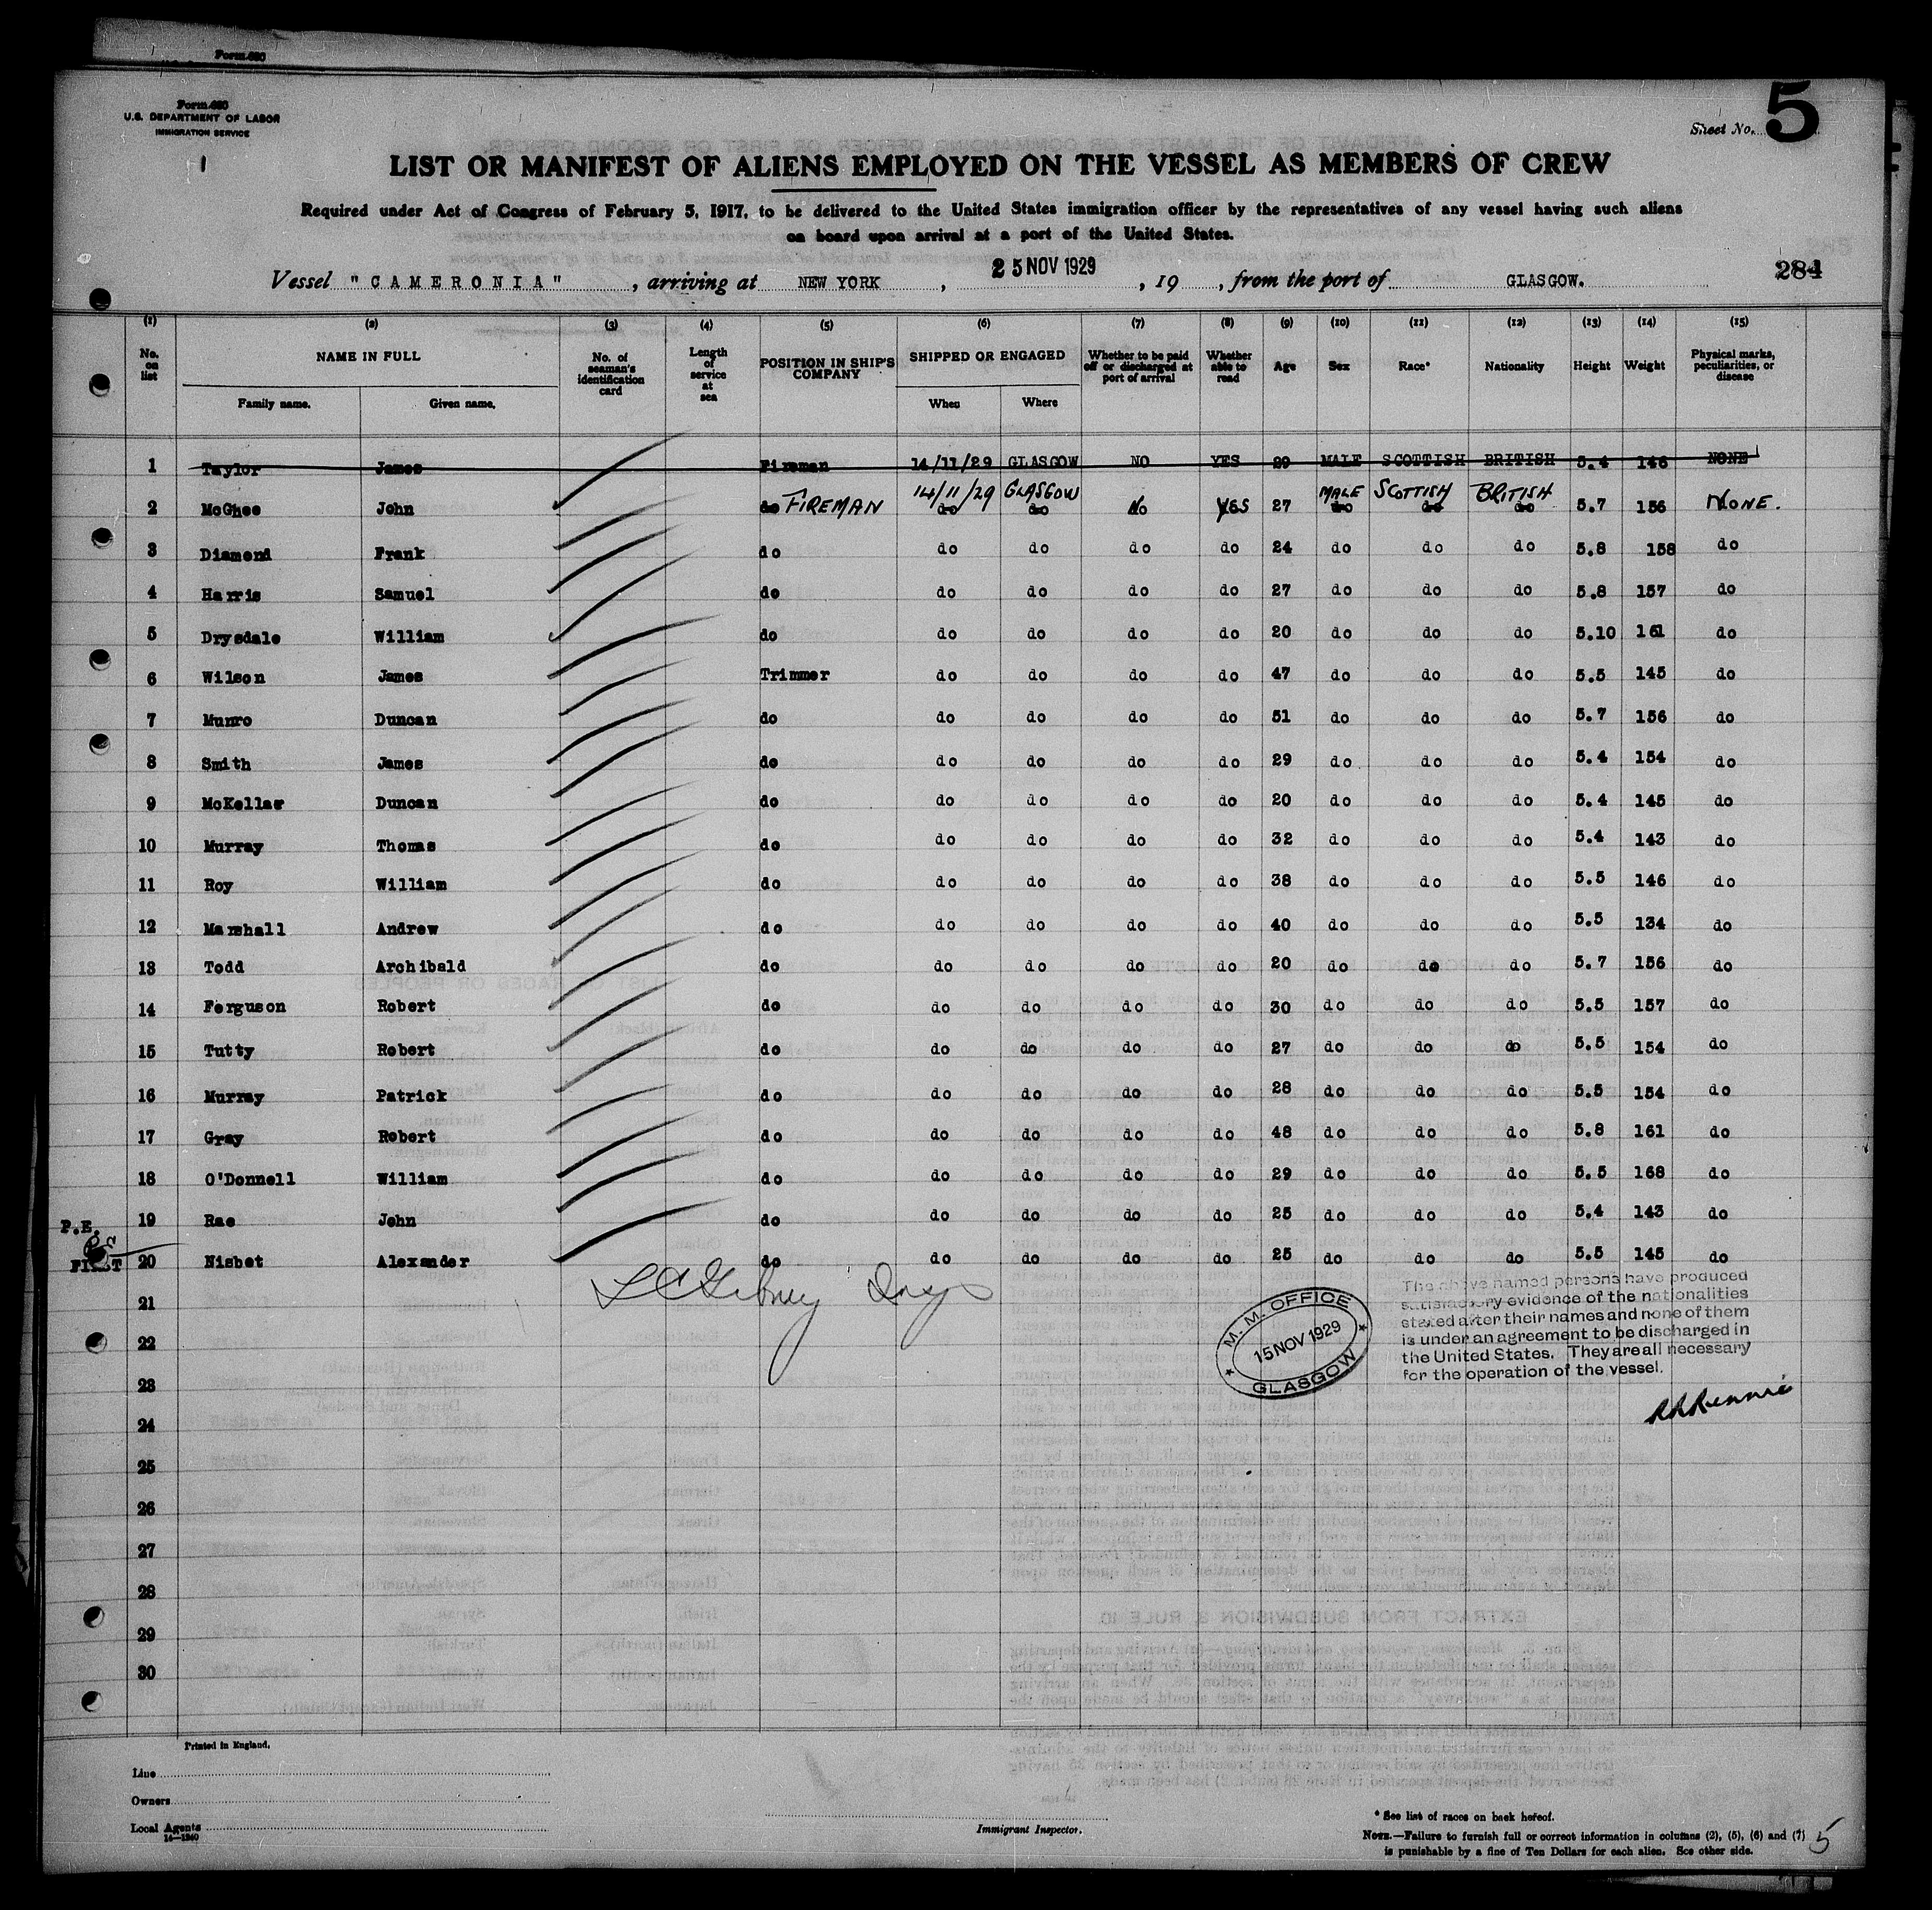 Form 680
Form 680
U.S. DEPARTMENT OF LABOR
IMMIGRATION SERVICE
1
Sheet No. 5
LIST OR MANIFEST OF ALIENS EMPLOYED ON THE VESSEL AS MEMBERS OF CREW
Required under Act of Congress of February 5, 1917, to be delivered to the United States immigration officer by the representatives of any vessel having such aliens
on board upon arrival at a port of the United States.
Vessel "CAMERONIA", arriving at NEW YORK, 25 NOV 1929, 19 , from the port of GLASGOW. 284
(1) (2) (3) (4) (5) (6) (7) (8) (9) (10) (11) (12) (13) (14) (15)
No. on list NAME IN FULL Family name. Given name. No. of seaman's identification card Length of service at sea POSITION IN SHIP'S COMPANY SHIPPED OR ENGAGED When Where Whether to be paid off or discharged at port of arrival Whether able to read Age Sex Race* Nationality Height Weight Physical marks, peculiarities, or disease
1 Taylor James Fireman 14/11/29 GLASGOW NO YES 29 MALE SCOTTISH BRITISH 5.4 146 NONE
2 McGhee John do FIREMAN 14/11/29 do GLASGOW do No YES 27 MALE do SCOTTISH do BRITISH do 5.7 156 NONE.
3 Diamond Frank do do do do do 24 do do do 5.8 158 do
4 Harris Samuel do do do do do 27 do do do 5.8 157 do
5 Drysdale William do do do do do 20 do do do 5.10 161 do
6 Wilson James Trimmer do do do do 47 do do do 5.5 145 do
7 Munro Duncan do do do do do 51 do do do 5.7 156 do
8 Smith James do do do do do 29 do do do 5.4 154 do
9 McKellar Duncan do do do do do 20 do do do 5.4 145 do
10 Murray Thomas do do do do do 32 do do do 5.4 143 do
11 Roy William do do do do do 38 do do do 5.5 146 do
12 Marshall Andrew do do do do do 40 do do do 5.5 134 do
13 Todd Archibald do do do do do 20 do do do 5.7 156 do
14 Ferguson Robert do do do do do 30 do do do 5.5 157 do
15 Tutty Robert do do do do do 27 do do do 5.5 154 do
16 Murray Patrick do do do do do 28 do do do 5.5 154 do
17 Gray Robert do do do do do 48 do do do 5.8 161 do
18 O'Donnell William do do do do do 29 do do do 5.5 168 do
P.E. 19 Rae John do do do do do 25 do do do 5.4 143 do
FIRST 20 Nisbet Alexander do do do do do 25 do do do 5.5 145 do
21
22
23
24
25
26
27
28
29
30
M. M. OFFICE
15 NOV 1929
GLASGOW
The above named persons have produced
satisfactory evidence of the nationalities
stated after their names and none of them
is under an agreement to be discharged in
the United States. They are all necessary
for the operation of the vessel.
RRRennie
Printed in England.
Line
Owners
Local Agents
14—1240
Immigrant Inspector.
* See list of races on back hereof.
NOTE.—Failure to furnish full or correct information in columns (2), (5), (6) and (7)
is punishable by a fine of Ten Dollars for each alien. See other side.
5